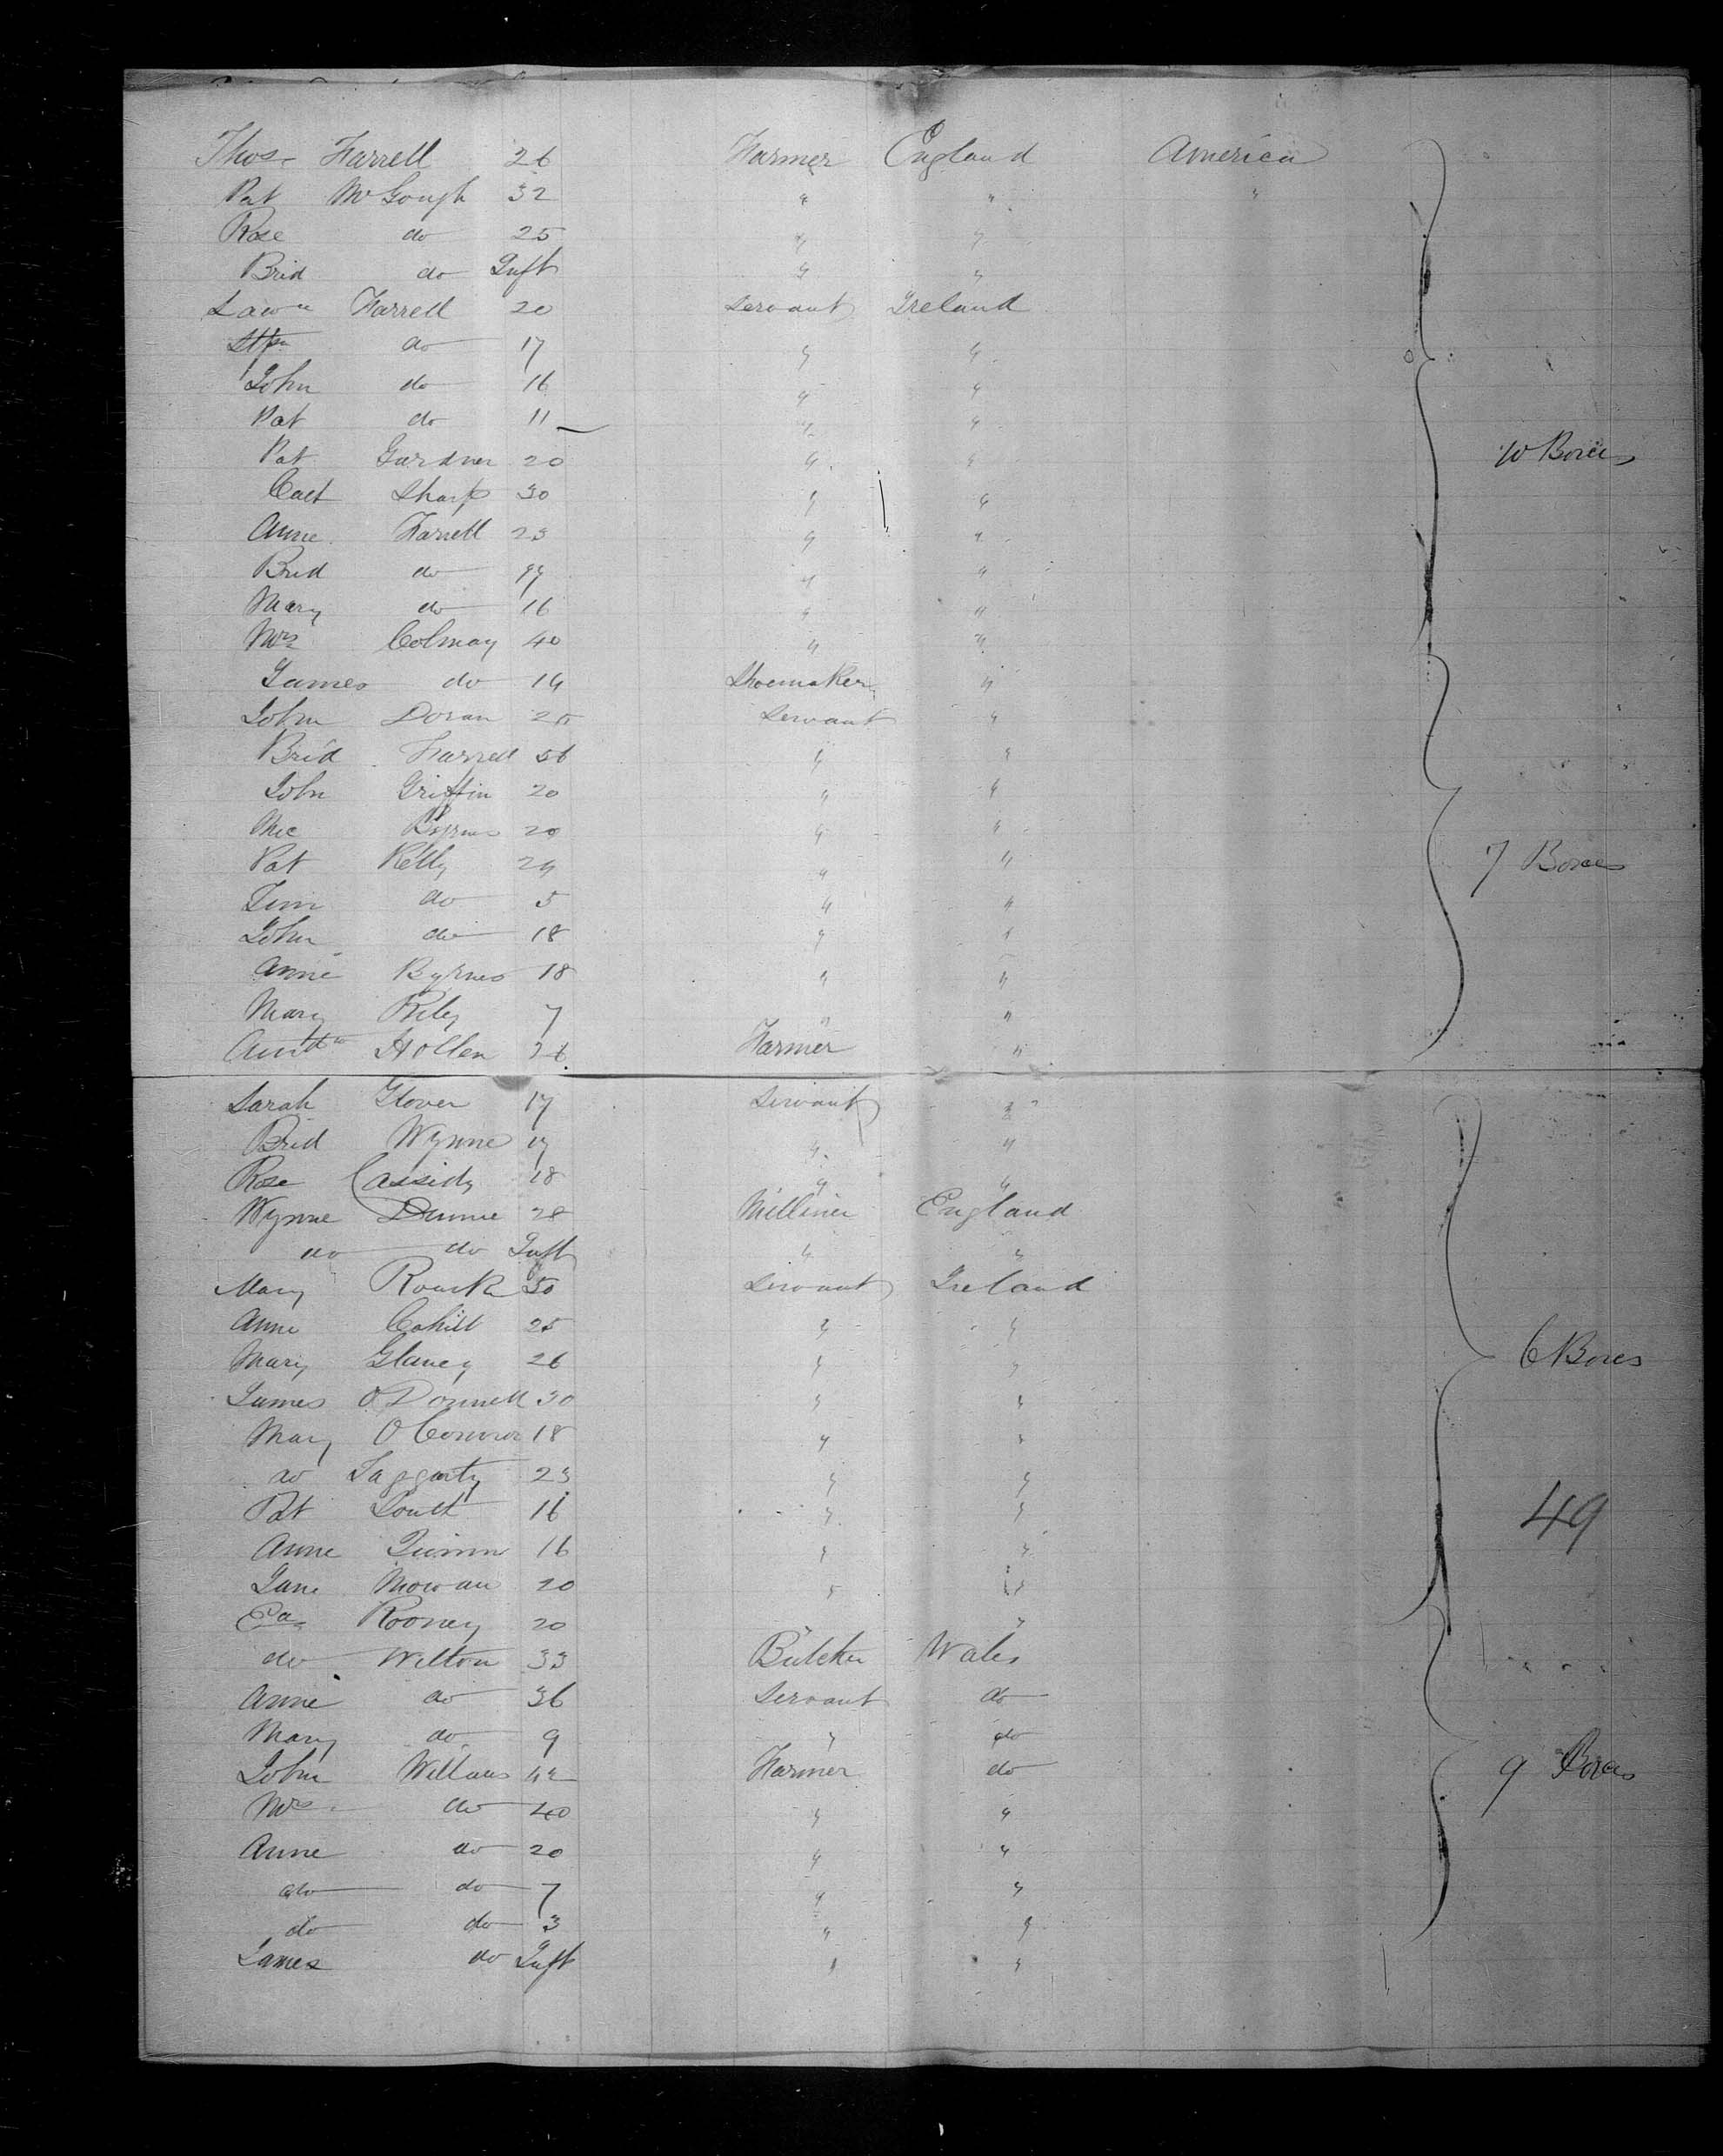 Thos Farrell 26 Farmer England America
Pat McGough 32 " " "
Rose do 25 " "
Brid do Inft " "
Lawn Farrell 20 Servant Ireland
do 17 " "
John do 16 " "
Pat do 11 " "
Pat Gardner 20 " "
10 Boxes
Cact Sharp 30 " "
Anne Farrell 23 " "
Brid do " "
Mary do 16 " "
Mrs Colmay 40 " "
James do 14 Shoemaker "
John Doran Servant "
Brid Farrell 56 " "
John Griffin 20 " "
Mic Byrnes 20 " "
Pat Kelly 24 " "
7 Boxes
Tim do 5 " "
John do 18 " "
Anne Byrnes 18 " "
Mary Riley 7 " "
Hollen 26 Farmer "
Sarah Glover 17 Servant "
Brid Wynne 17 " "
Rose Cassidy 18 " "
Wynne Dunne 28 Milliner England
do do Inft " "
Mary Rourke 50 Servant Ireland
Anne Cahill 25 " "
Mary Glancy 26 " "
6 Boxes
James O'Donnell 30 " "
Mary O'Connor 18 " "
do Taggarty 23 " "
Pat 16 " "
49
Anne Quinn 16 " "
Jane Mowan 20 " "
Rooney 20 " "
do Wilton 33 Butcher Wales
Anne do 36 Servant do
Mary do 9 " do
John Willans 42 Farmer do
9 Boxes
Mrs do 40 " "
Anne do 20 " "
do do 7 " "
do do 3 " "
James do Inft " "